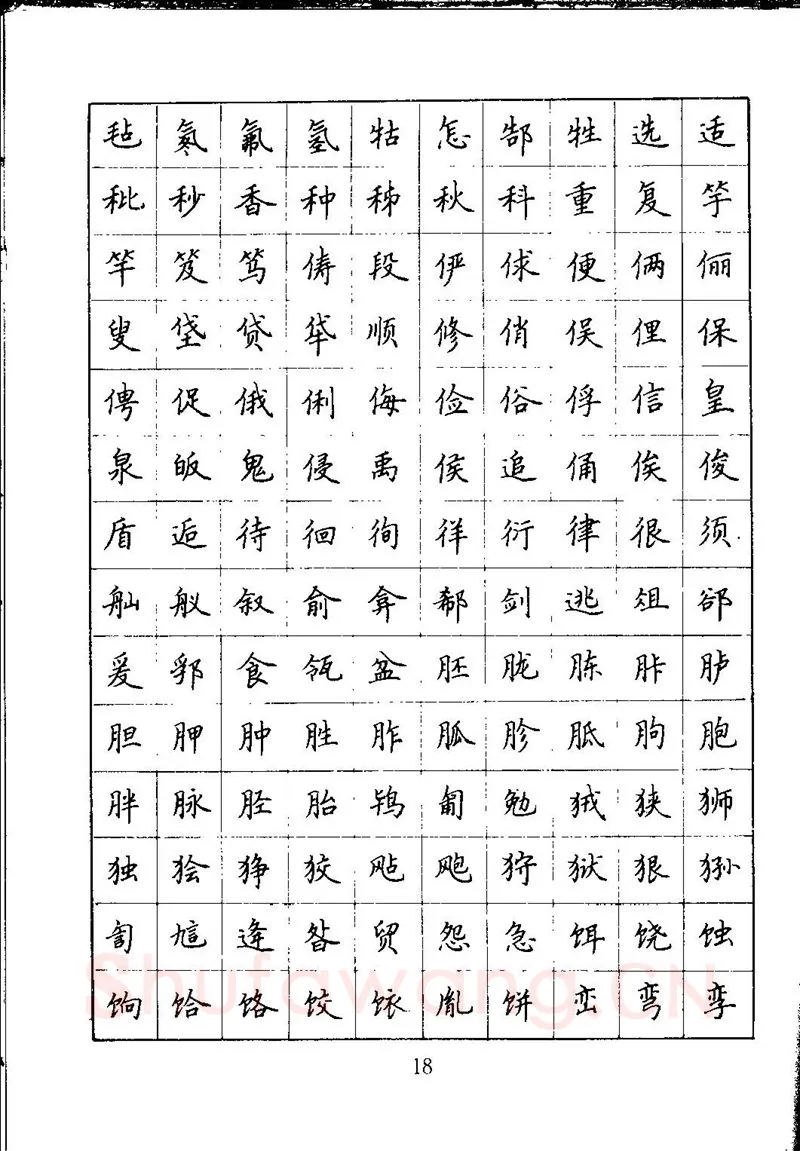 毡氡氟氢牯怎郜牲选适
秕秒香种秭秋科重复竽
竿笈笃俦段俨俅便俩俪
叟垡贷牮顺修俏俣俚保
俜促俄俐侮俭俗俘信皇
泉皈鬼侵禹侯追俑俟俊
盾逅待徊徇徉衍律很须
舢舣叙俞弇郗剑逃俎郤
爰郛食瓴盆胚胧胨胩胪
胆胛胂胜胙胍胗胝朐胞
胖脉胫胎鸨匍勉狨狭狮
独狯狰狡飐飑狩狱狠狲
訇訄逄昝贸怨急饵饶蚀
饷饸饹饺饻胤饼峦弯孪
Shufawang.CN
18